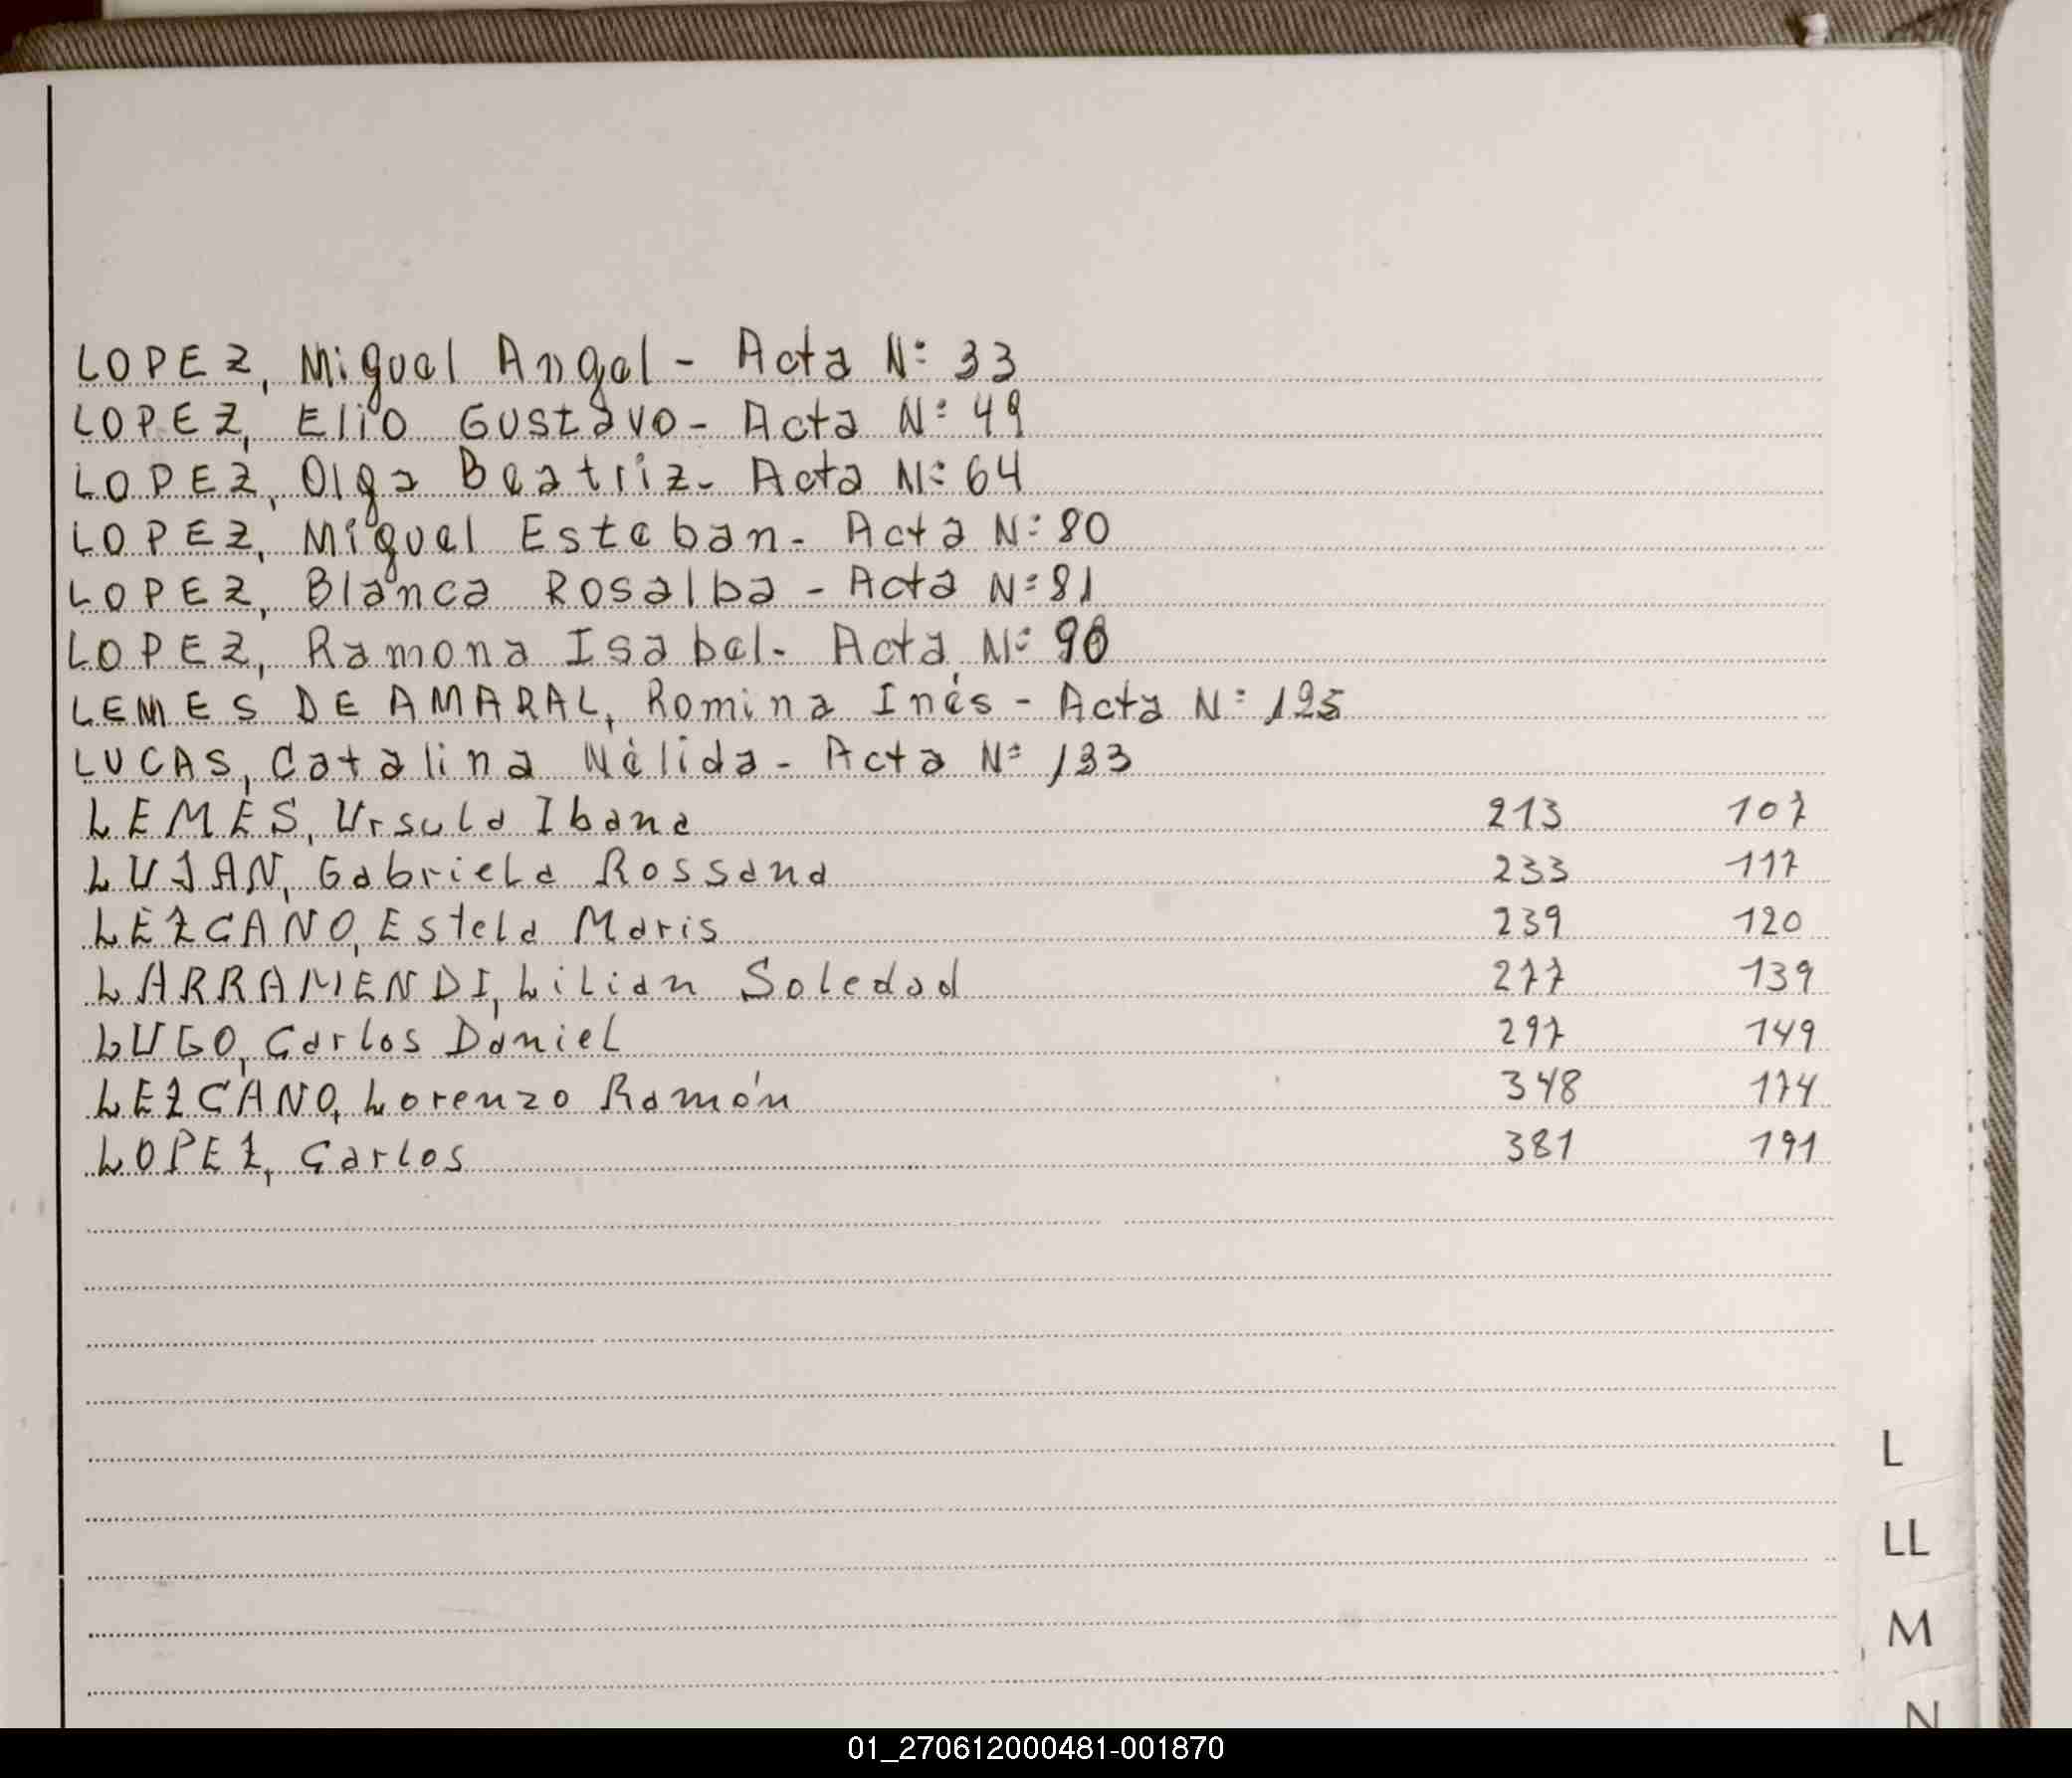 LOPEZ, Miguel Angel - Acta N: 33
LOPEZ, Elio Gustavo - Acta N: 49
LOPEZ, Olga Beatriz - Acta N: 64
LOPEZ, Miguel Esteban - Acta N: 80
LOPEZ, Blanca Rosalba - Acta N: 81
LOPEZ, Ramona Isabel - Acta N:
LEMES DE AMARAL, Romina Inés - Acta N: 125
LUCAS, Catalina Nélida - Acta N: 133
LEMES, Ursula Ibana 213 107
LUJAN, Gabriela Rossana 233 117
LEZCANO, Estela Maris 239 120
LARRAMENDI, Lilian Soledad 277 139
LUGO, Carlos Daniel 297 149
LEZCANO, Lorenzo Ramón 348 174
LOPEZ, Carlos 381 191
L
LL
M
N
01_270612000481-001870